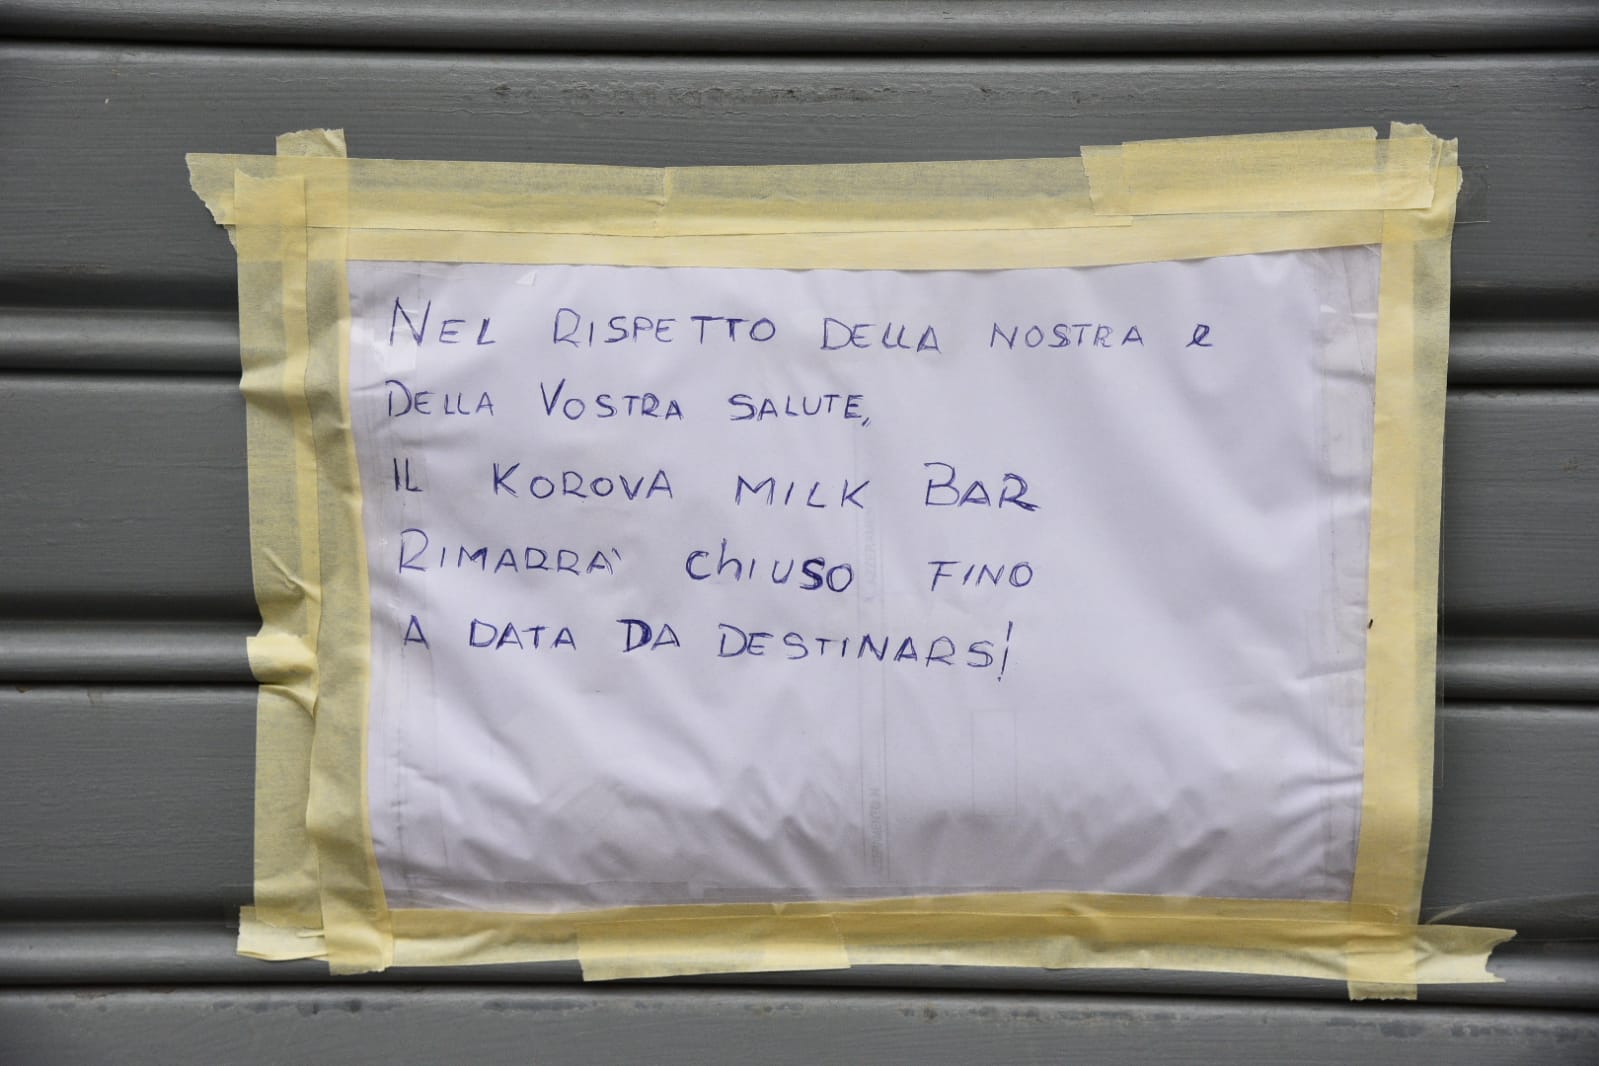 NEL RISPETTO DELLA NOSTRA e
DELLA VOSTRA SALUTE,
IL KOROVA MILK BAR
RIMARRA' ChIUSO FINO
A DATA DA DESTINARSI!